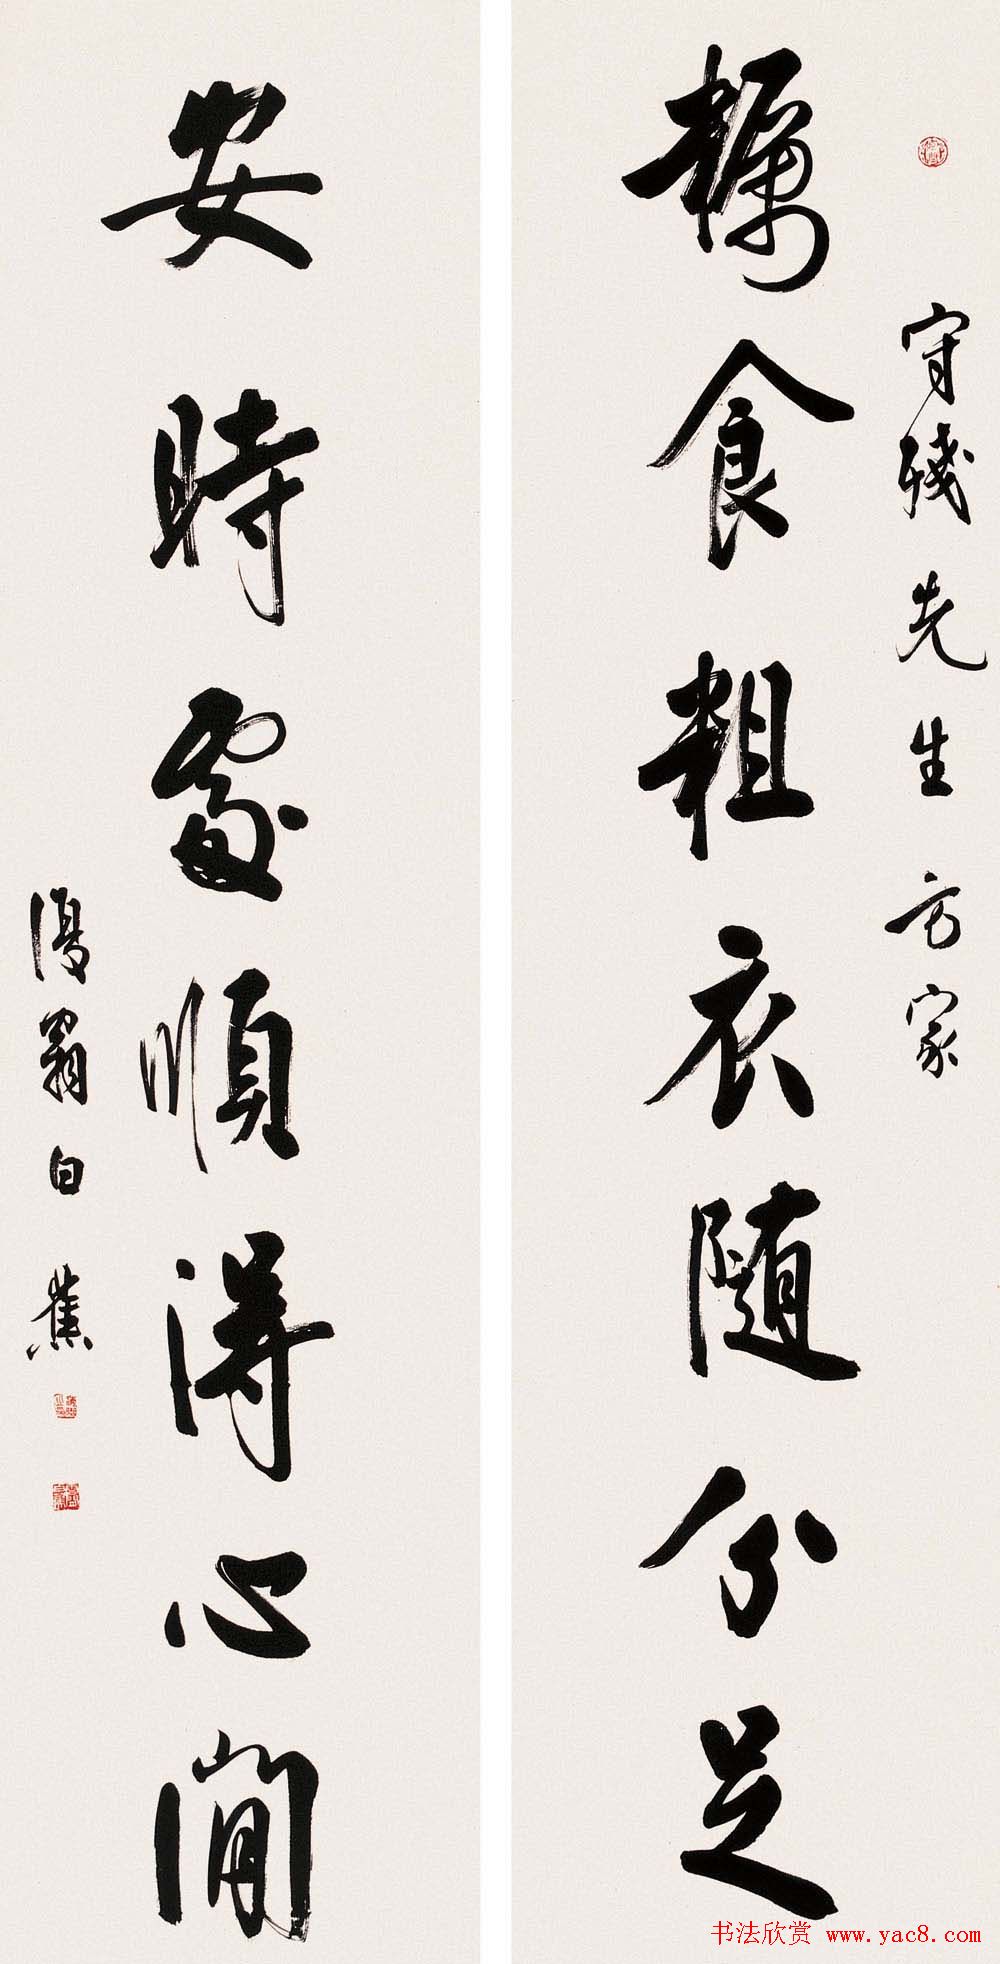 守殘先生方家
糲食粗衣随分足
安時處順得心閒
復翁白蕉
书法欣赏 www.yac8.com